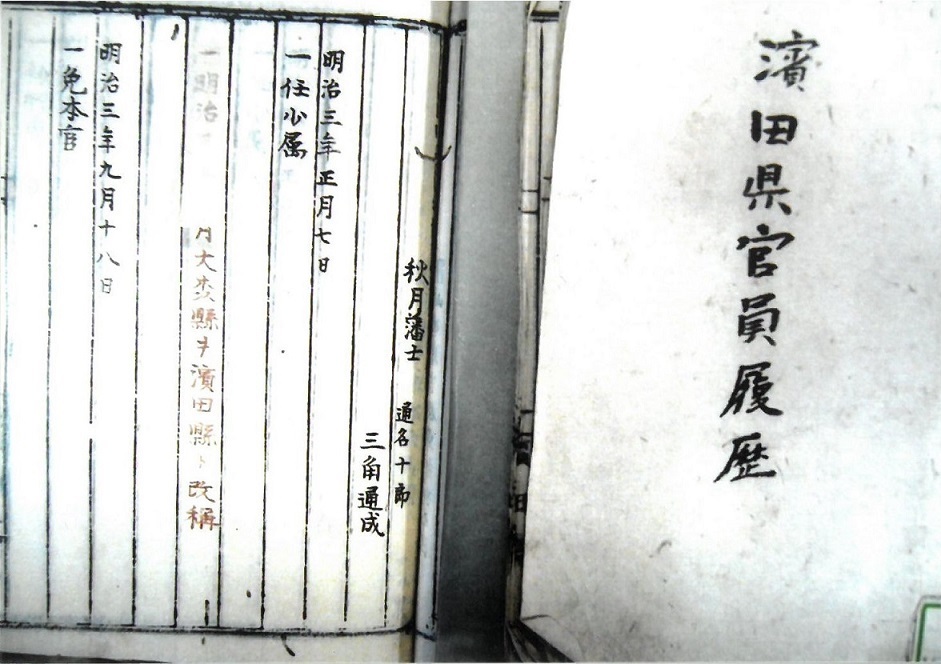 濱田県官員履歴
秋月藩士　通名十郎
三角通成
明治三年正月七日
一任少属
一明治　月大森縣ヲ濱田縣ト改稱
明治三年九月十八日
一免本官